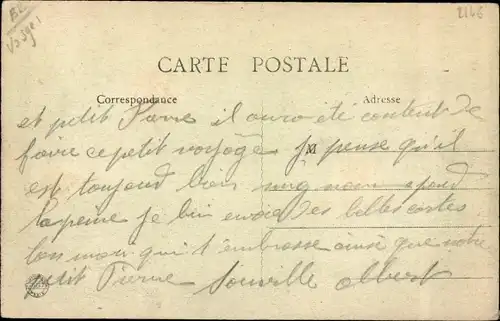 BE
Vosges
2146
CARTE POSTALE
Correspondance Adresse
et petit Pierre il aura été content de
faire ce petit voyage je pense qu'il M
est toujour bien
la peine je bien des belles cartes
bon qui t'embrasse ainsi que notre
petit Pierre Albert